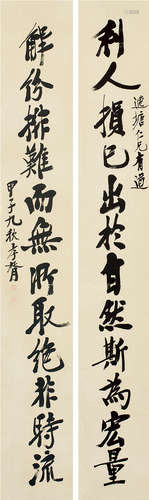 利人損己出於自然斯為宏量
蓮塘仁兄有道
解紛排難而無所取絕非時流
甲子九秋孝胥